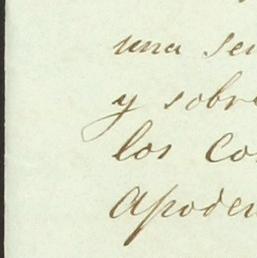 una se
y sobre
los Co
Apode